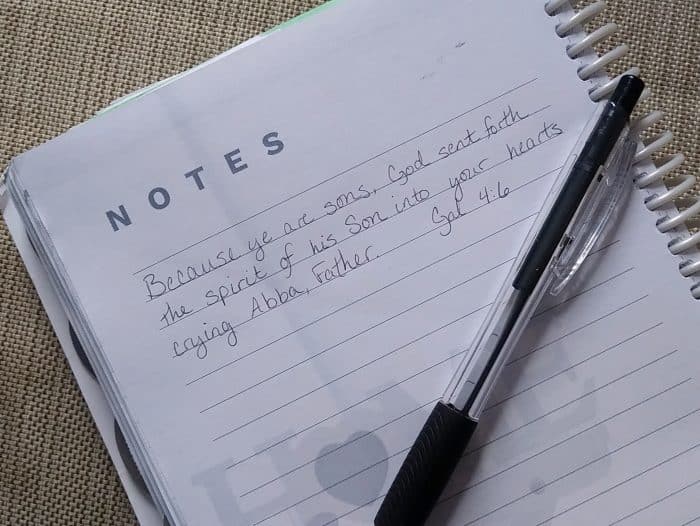 NOTES
Because ye are sons, God sent forth
the spirit of his Son into your hearts
crying Abba, Father. Gal 4:6